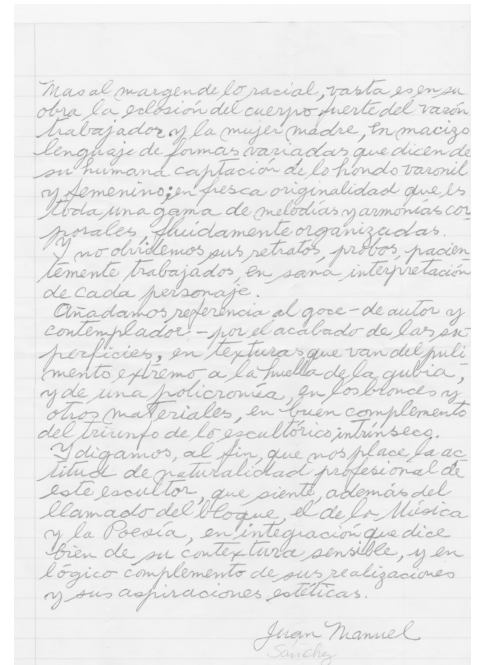 Mas al margen de lo racial, vasta es en su
obra la eclosión del cuerpo fuerte del varón
trabajador y la mujer madre, en macizo
lenguaje de formas variadas que dicen de
su humana captación de lo hondo varonil
y femenino; en fresca originalidad que es
toda una gama de melodías y armonías cor
porales, fluidamente organizadas.
Y no olvidemos sus retratos, probos, pacien
temente trabajados, en sana interpretación
de cada personaje.
Añadamos referencia al goce - de autor y
contemplador - por el acabado de las su
perficies, en texturas que van del puli
mento extremo a la huella de la gubia,
y de una policromía, en los bronces y
otros materiales, en buen complemento
del triunfo de lo escultórico, intrínseco.
Y digamos, al fin, que nos place la ac
titud de naturalidad profesional de
este escultor, que siente, además del
llamado del bloque, el de la Música
y la Poesía, en integración que dice
bien de su contextura sensible, y en
lógico complemento de sus realizaciones
y sus aspiraciones estéticas.
Juan Manuel
Sánchez